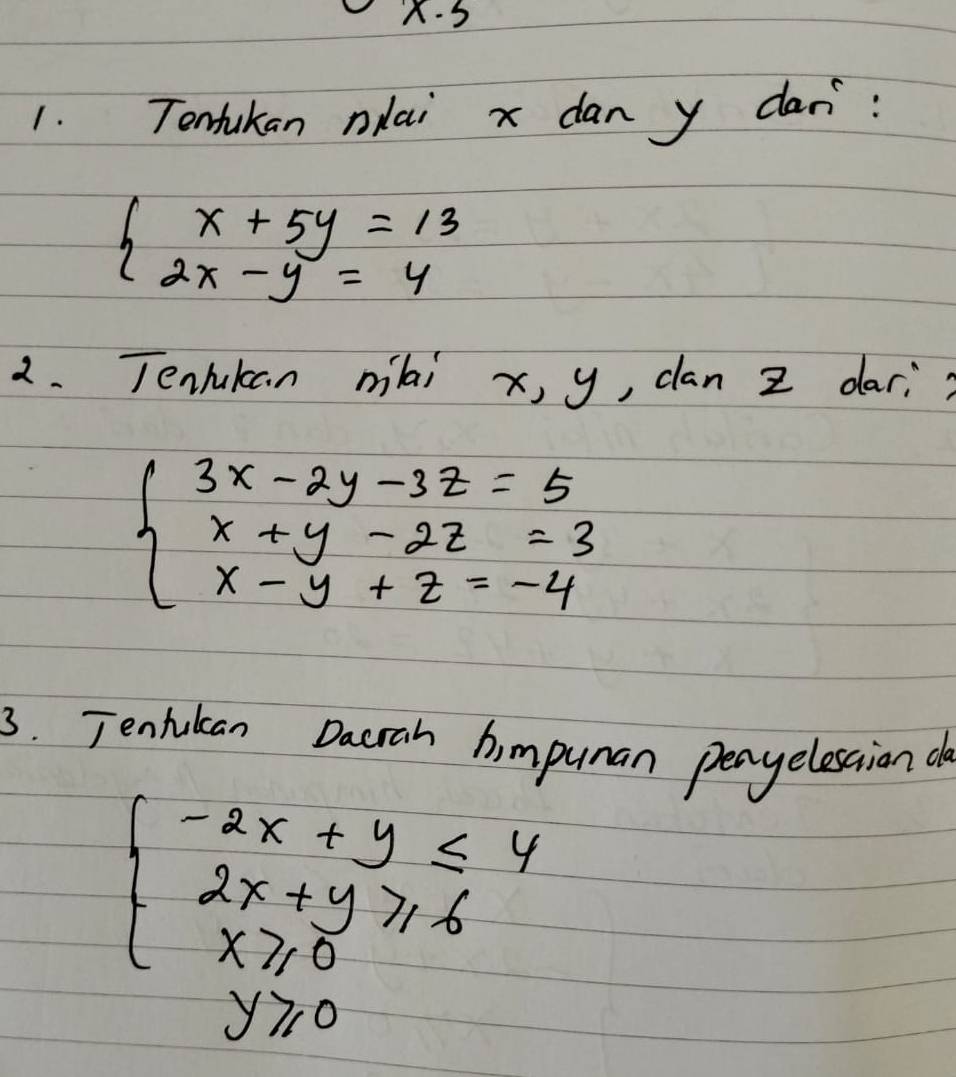 x-5
1. Tentukan nilai x dan y dari :
x + 5y = 13
2x - y = 4
2. Tentukan nilai x, y, dan z dari :
3x - 2y - 3z = 5
x + y - 2z = 3
x - y + z = -4
3. Tentukan Daerah himpunan penyelesaian da
-2x + y ≤ 4
2x + y ≥ 6
x ≥ 0
y ≥ 0